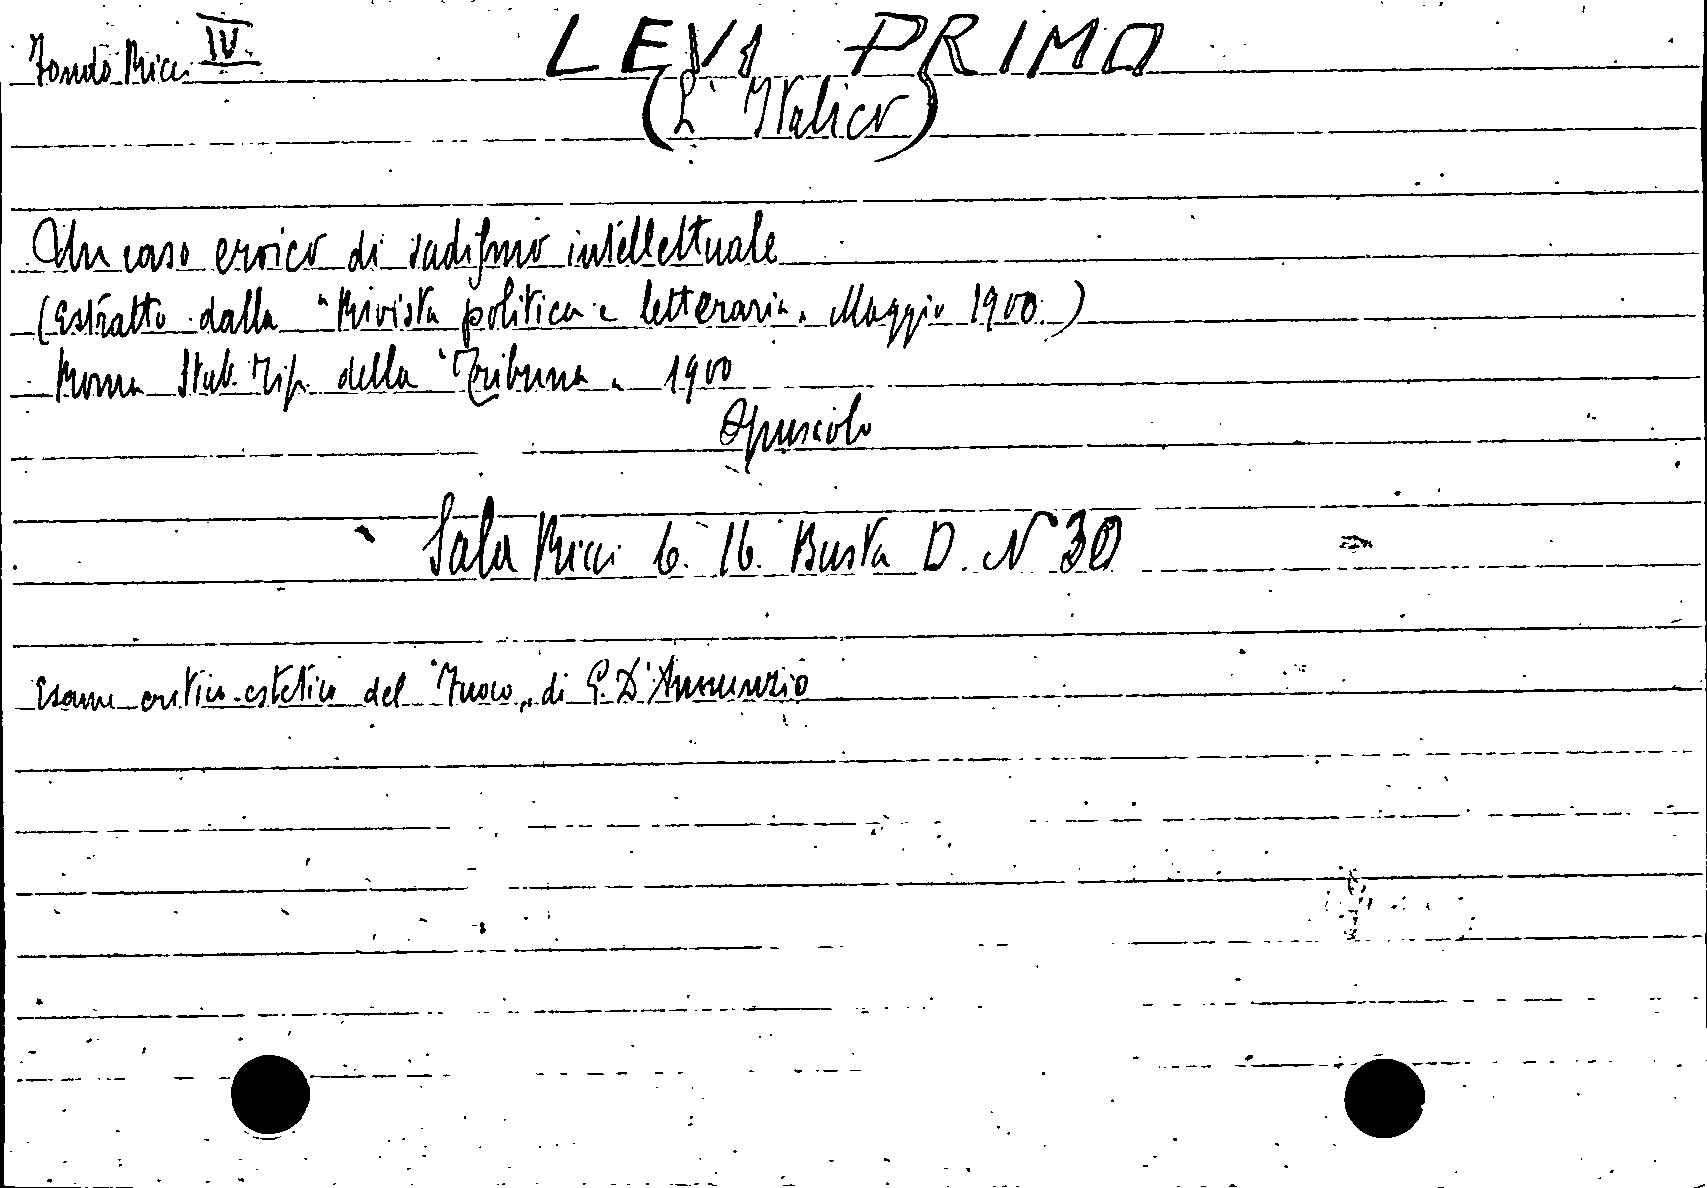 Fondo Ricci IV
LEVI PRIMO
(L'Italico)
Un caso eroico di sadismo intellettuale
(Estratto dalla "Rivista politica e letteraria" Maggio 1900.)
Roma Stab. Tip. della "Tribuna" 1900
Opuscolo
Sala Ricci 6. 16. Busta D. N 30
Esame critico-estetico del "Fuoco" di G. D'Annunzio